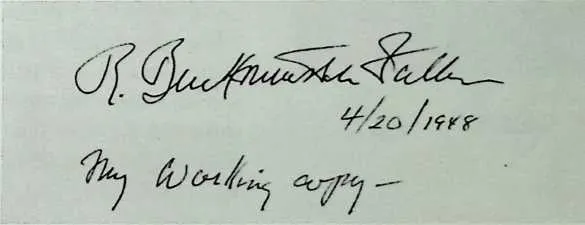 R. Buckminster Fuller
4/20/1948
My working copy –